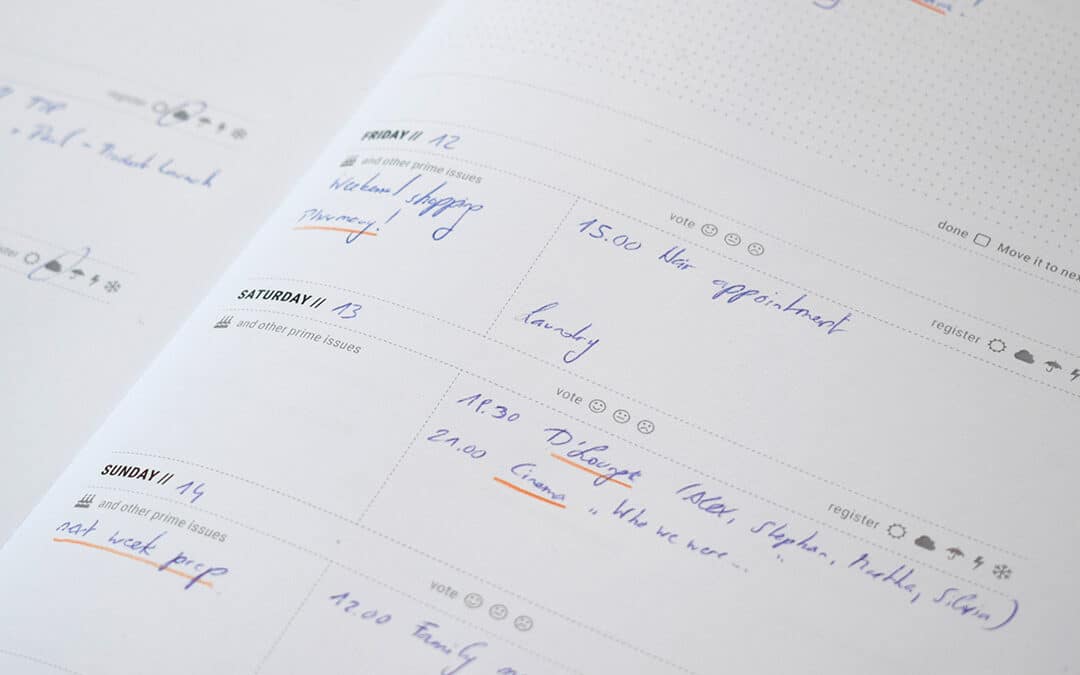 register
Paul - Product Launch
FRIDAY // 12
and other prime issues
Weekend shopping
Pharmacy!
vote
done Move it to nex
15.00 Hair appointment
Laundry
register
SATURDAY // 13
and other prime issues
vote
19.30 D'Lounge (Alex, Stephan, Martha, Silvia)
21.00 Cinema "Who we were..."
register
SUNDAY // 14
and other prime issues
next week prep
vote
12.00 Family